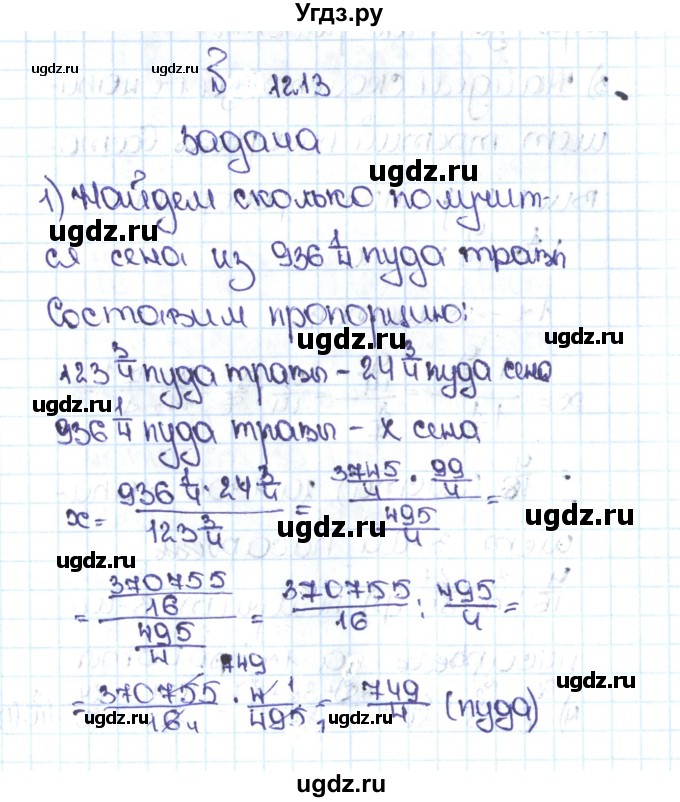 Угдз.ру
ugdz.ru ugdz.ru ugdz.ru
1213
задача
ugdz.ru
1) Найдем сколько получит-
ugdz.ru
ся сена из 936 1/4 пуда травы
Составим пропорцию:
ugdz.ru
123 3/4 пуда травы - 24 3/4 пуда сена
ugdz.ru ugdz.ru
936 1/4 пуда травы - х сена
x = (936 1/4 · 24 3/4) / (123 3/4) = (3745/4 · 99/4) / (495/4) =
ugdz.ru ugdz.ru
= (370755/16) / (495/4) = 370755/16 : 495/4 =
ugdz.ru
749
= 370755/16 4 · 4 1/495 1 = 749/4 (пуда)
ugdz.ru ugdz.ru ugdz.ru
ugdz.ru